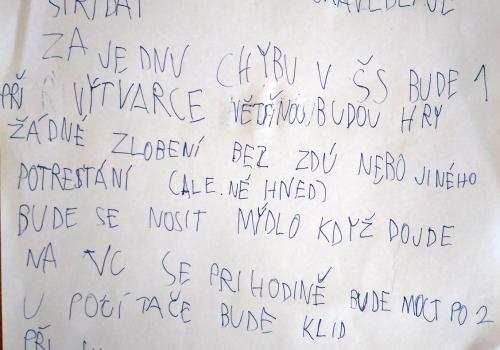 STŘÍDAT
ZA JEDNU CHYBU V ŠS BUDE 1
PŘI VÝTVARCE VĚTŠINOU BUDOU HRY
ŽÁDNÉ ZLOBENÍ BEZ ZDŮ NEBO JINÉHO
POTRESTÁNÍ (ALE NÉ HNED)
BUDE SE NOSIT MÝDLO KDYŽ DOJDE
NA VC SE PŘI HODINĚ BUDE MOCT PO 2
U POČÍTAČE BUDE KLID
PŘI